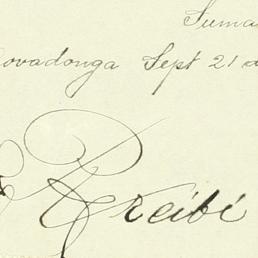 Suma
Covadonga Sept 21 d
Recibi